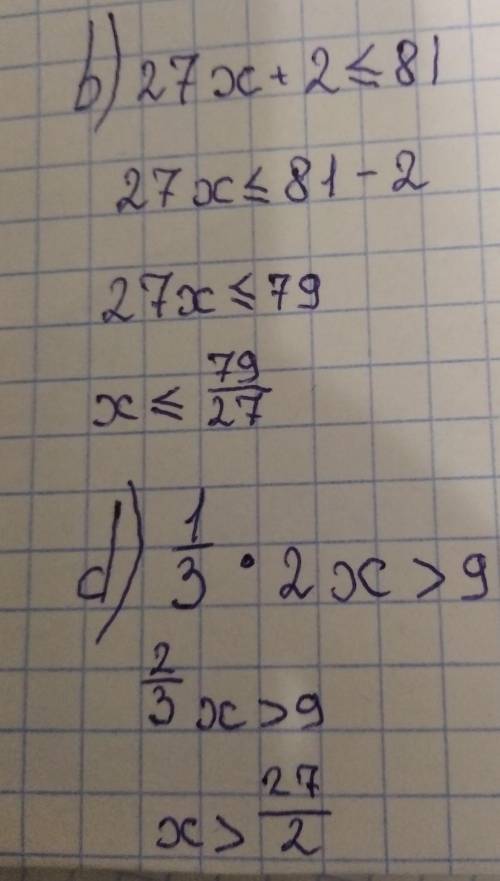 b) 27x + 2 ≤ 81
27x ≤ 81 - 2
27x ≤ 79
x ≤ 79/27
d) 1/3 · 2x > 9
2/3 x > 9
x > 27/2